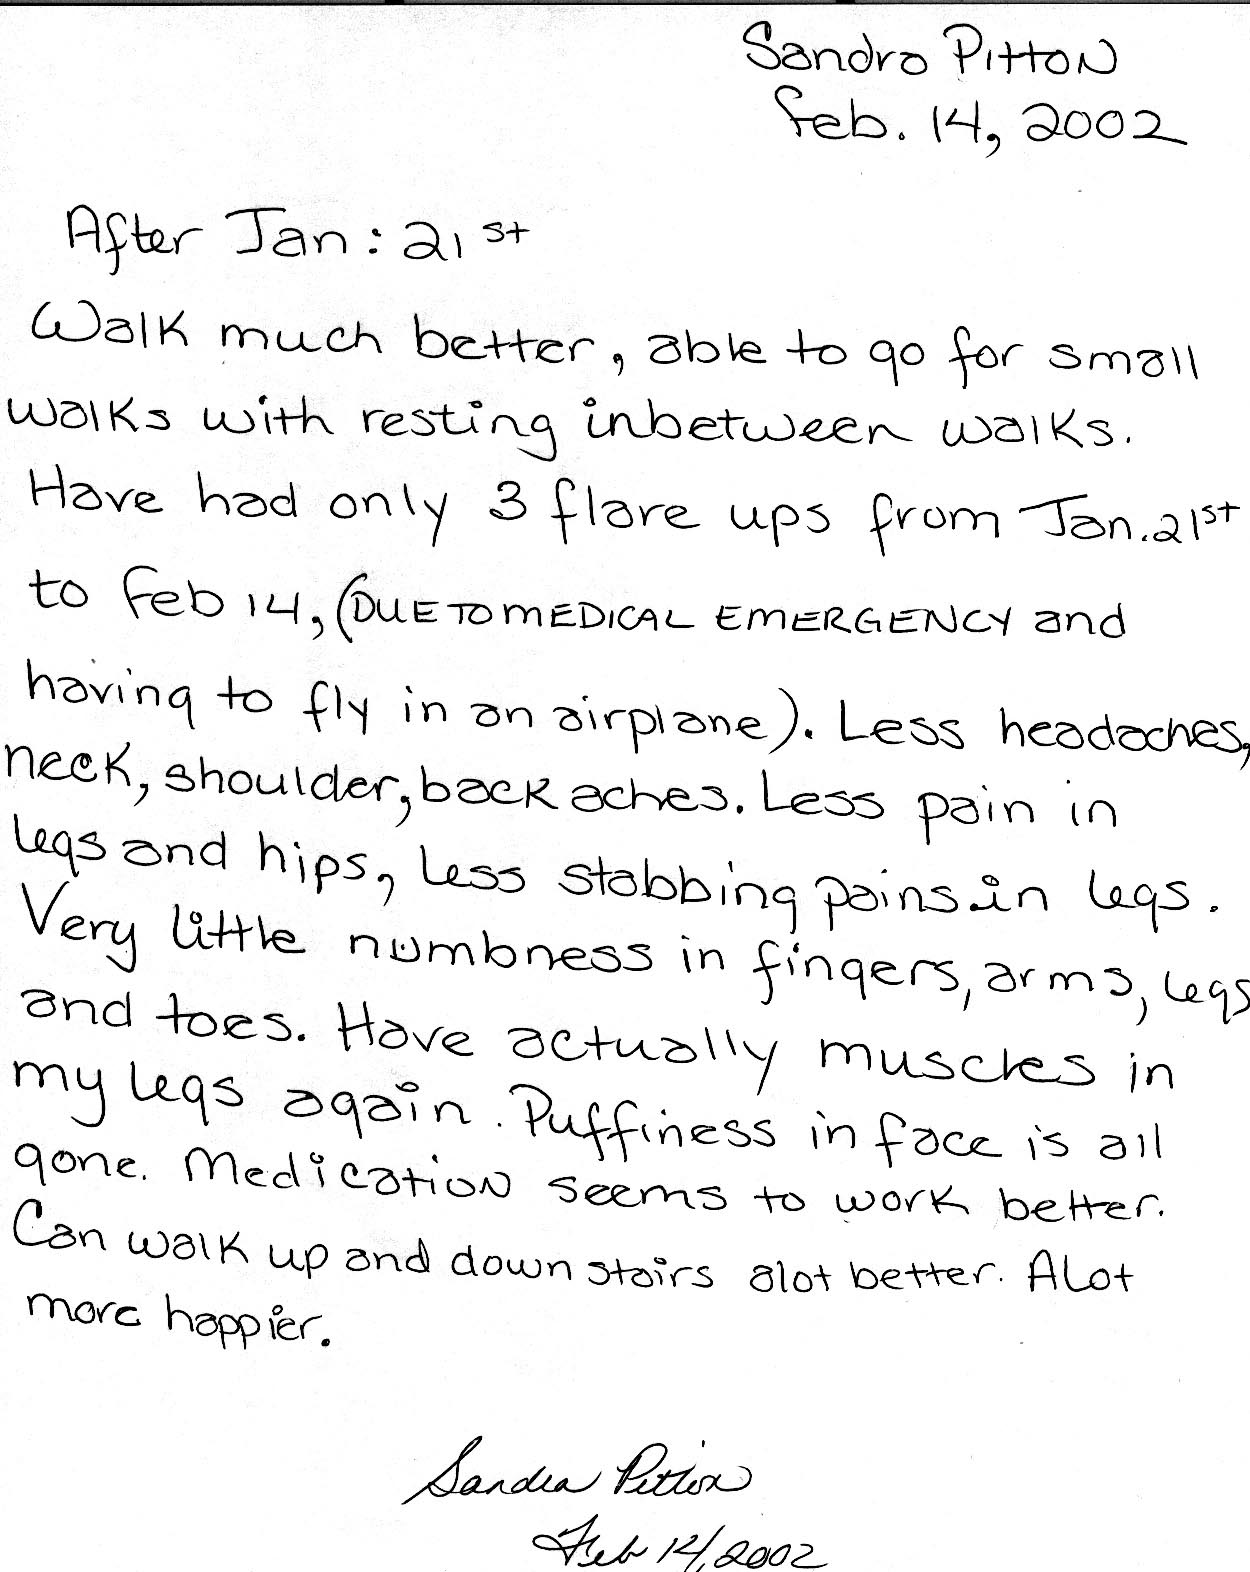 Sandra Pitton
Feb. 14, 2002
After Jan: 21st
Walk much better, able to go for small
walks with resting inbetween walks.
Have had only 3 flare ups from Jan. 21st
to Feb 14, (DUE TO MEDICAL EMERGENCY and
having to fly in an airplane). Less headaches,
neck, shoulder, back aches. Less pain in
legs and hips, less stabbing pains in legs.
Very little numbness in fingers, arms, legs
and toes. Have actually muscles in
my legs again. Puffiness in face is all
gone. Medication seems to work better.
Can walk up and down stairs alot better. Alot
more happier.
Sandra Pitton
Feb 14, 2002